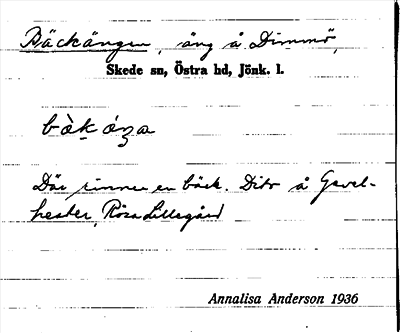 Bäckängen, äng å Dimmö,
Skede sn, Östra hd, Jönk. l.
Där rinner en bäck. Dito å Gavel-
hester, Rösa Lillegård
Annalisa Anderson 1936